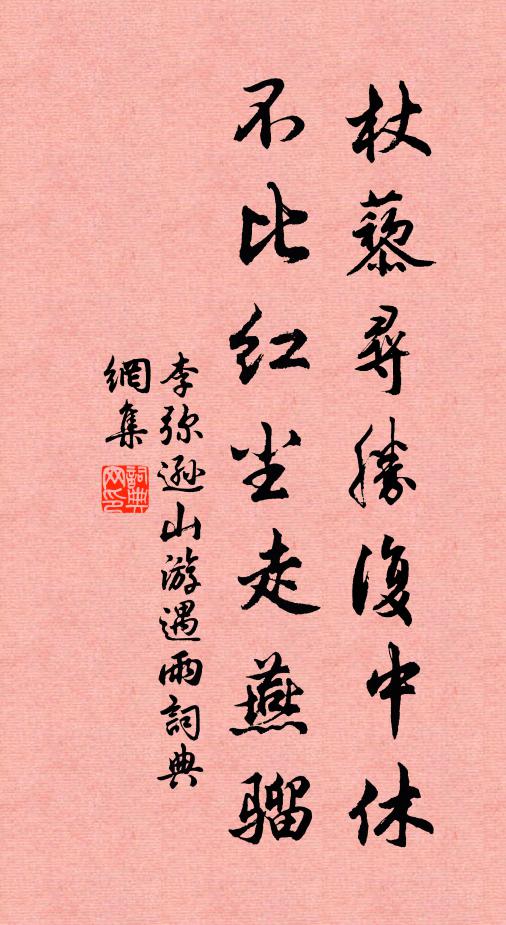 杖藜尋勝復中休
不比红尘走燕骝
李弥遜山游遇雨詞典
網集
詞典網印